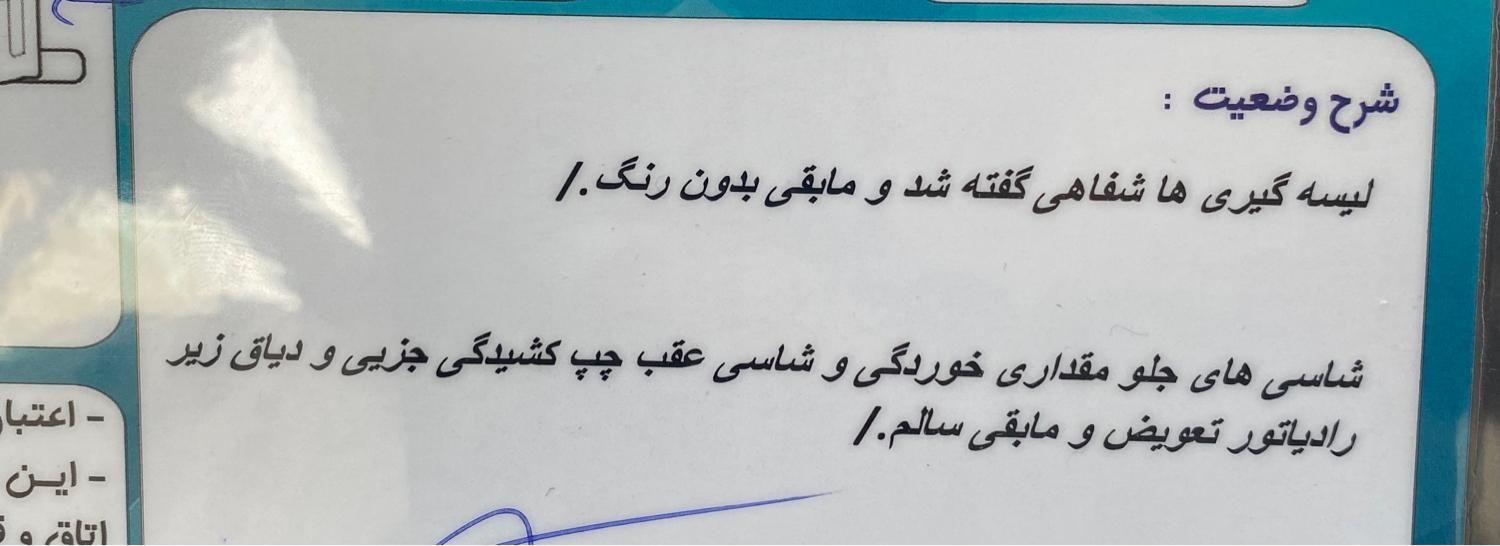 شرح وضعیت :
لیسه گیری ها شفاهی گفته شد و مابقی بدون رنگ./
شاسی های جلو مقداری خوردگی و شاسی عقب چپ کشیدگی جزیی و دیاق زیر
رادیاتور تعویض و مابقی سالم./
- اعتبار
- این
اتاق و